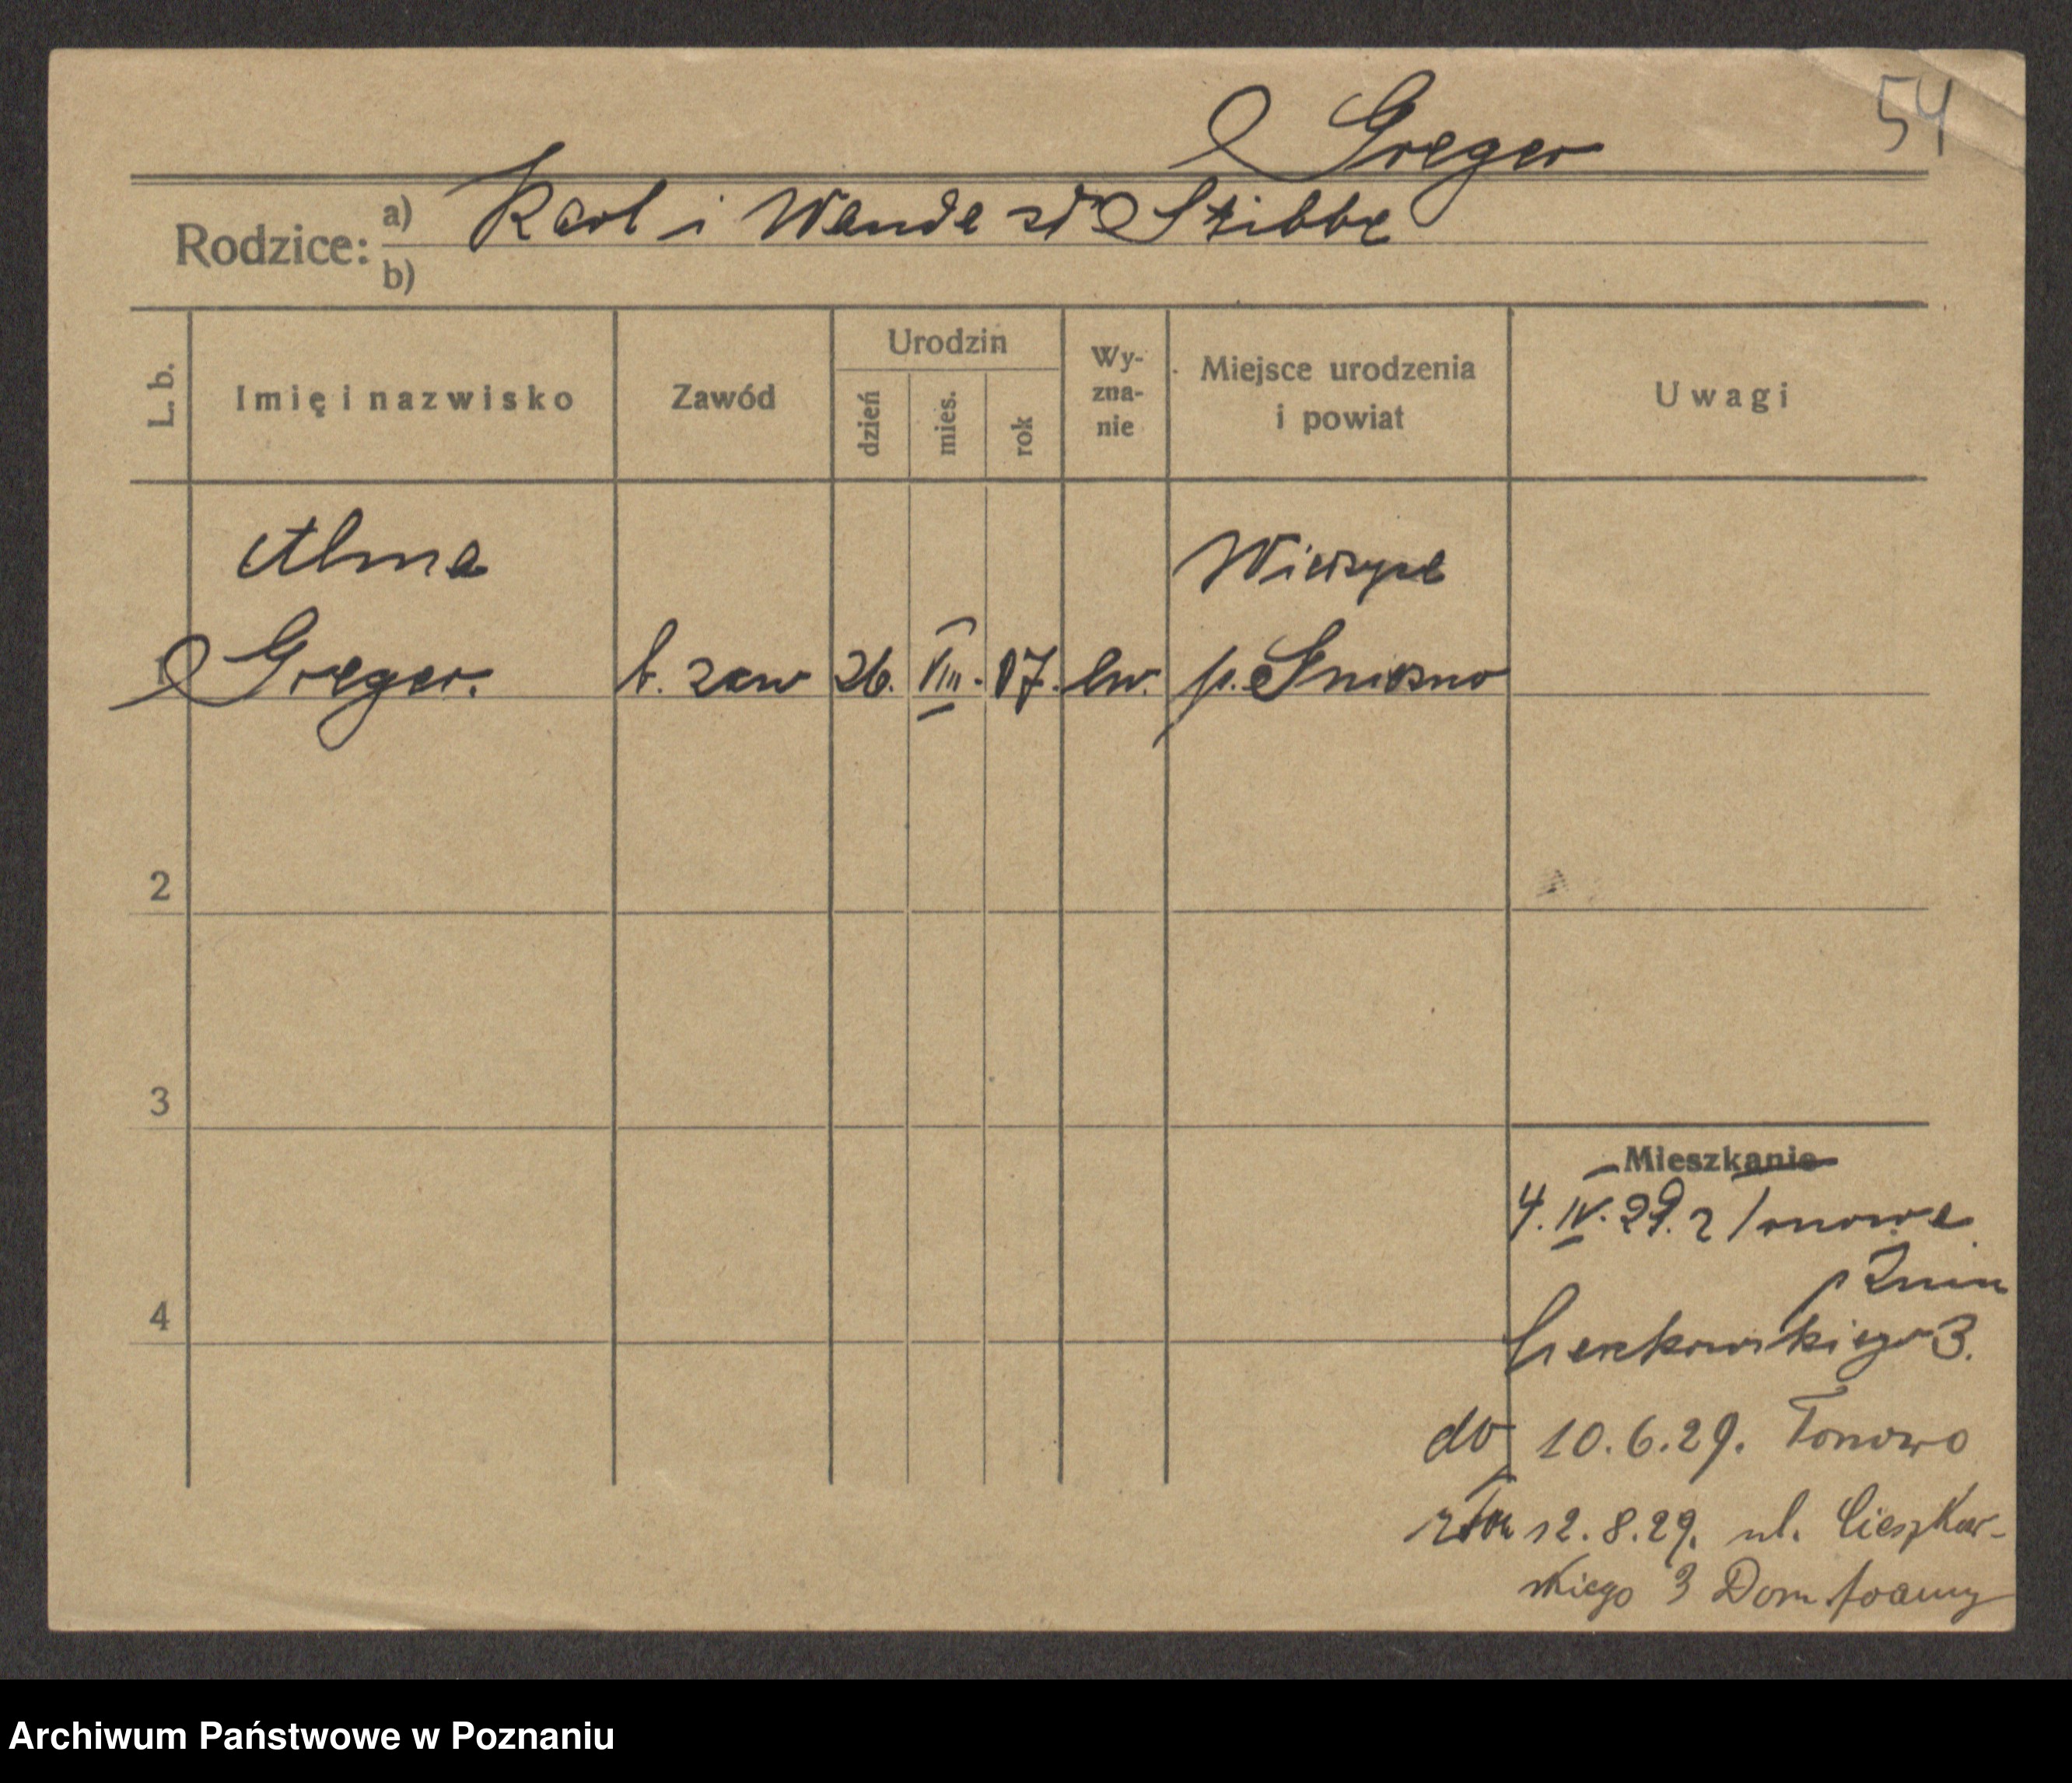 54
Greger
Rodzice: a) Karl i Wanda zd Stibbe
b)
L. b. Imię i nazwisko Zawód Urodzin dzień mies. rok Wy-zna-nie Miejsce urodzenia i powiat Uwagi
Alma
Greger. b. zaw 26. VIII. 07. ew. p. Gniezno
2
3
Mieszkanie
4. IV. 29. z
p Żnin
4
Cieszkowskiego 3.
do 10.6.29. Tonowo
12.8.29. ul. Cieszkow-
skiego 3 Dom
Archiwum Państwowe w Poznaniu